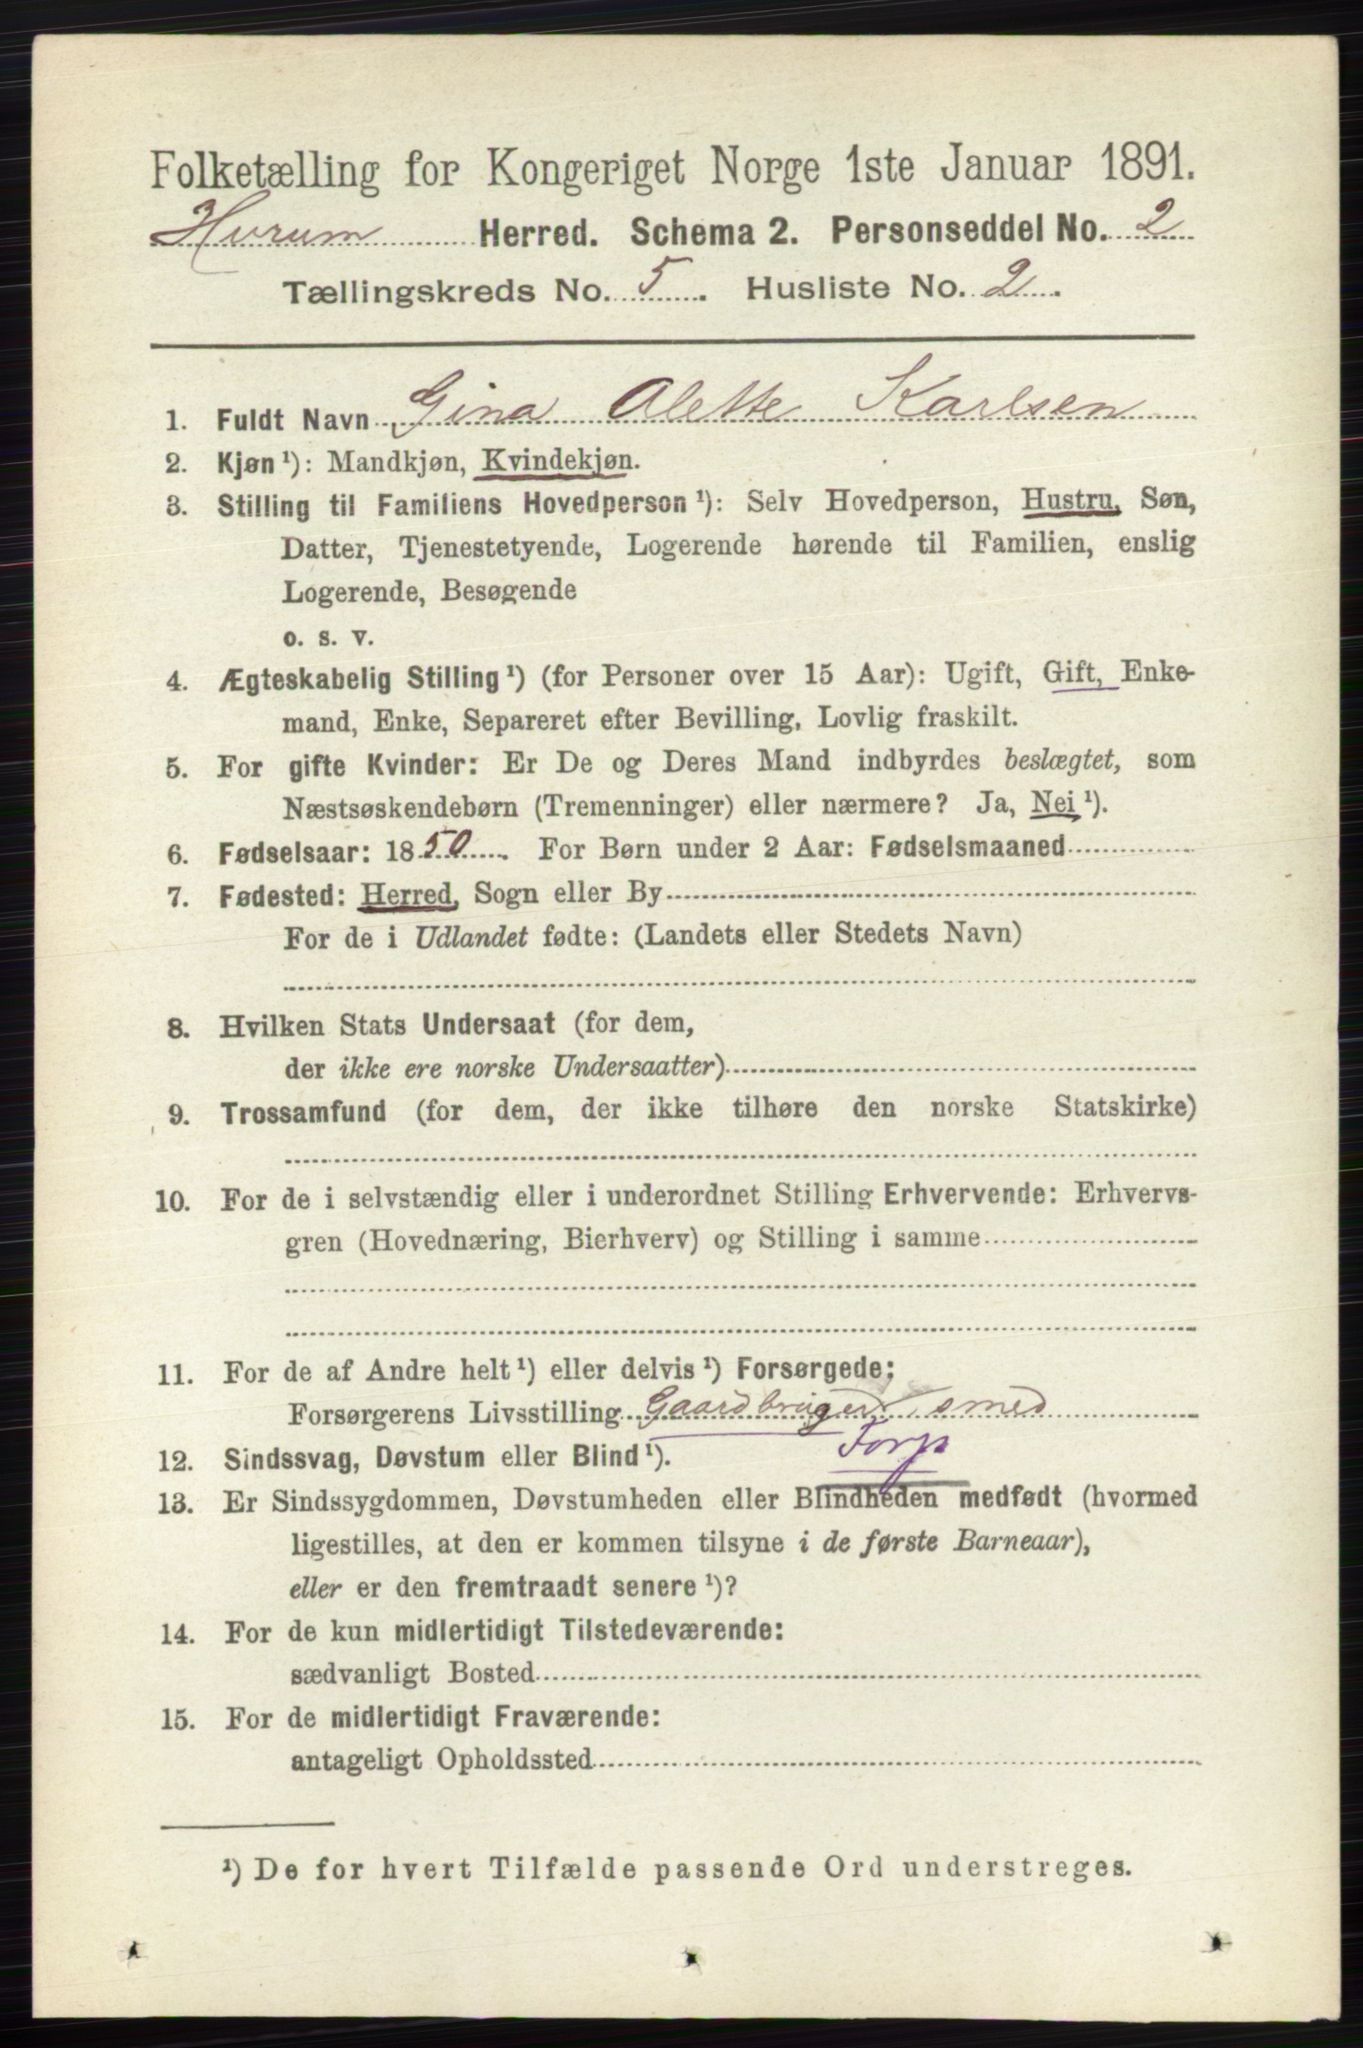 Folketælling for Kongeriget Norge 1ste Januar 1891.
Hurum Herred. Schema 2. Personseddel No. 2
Tællingskreds No. 5. Husliste No. 2.
1. Fuldt Navn Gina Alette Karlsen
2. Kjøn¹): Mandkjøn, Kvindekjøn.
3. Stilling til Familiens Hovedperson¹): Selv Hovedperson, Hustru, Søn,
Datter, Tjenestetyende, Logerende hørende til Familien, enslig
Logerende, Besøgende
o. s. v.
4. Ægteskabelig Stilling¹) (for Personer over 15 Aar): Ugift, Gift, Enke-
mand, Enke, Separeret efter Bevilling, Lovlig fraskilt.
5. For gifte Kvinder: Er De og Deres Mand indbyrdes beslægtet, som
Næstsøskendebørn (Tremenninger) eller nærmere? Ja, Nei¹).
6. Fødselsaar: 1850. For Børn under 2 Aar: Fødselsmaaned
7. Fødested: Herred, Sogn eller By
For de i Udlandet fødte: (Landets eller Stedets Navn)
8. Hvilken Stats Undersaat (for dem,
der ikke ere norske Undersaatter)
9. Trossamfund (for dem, der ikke tilhøre den norske Statskirke)
10. For de i selvstændig eller i underordnet Stilling Erhvervende: Erhvervs-
gren (Hovednæring, Bierhverv) og Stilling i samme
11. For de af Andre helt¹) eller delvis¹) Forsørgede:
Forsørgerens Livsstilling Gaardbruger smed
12. Sindssvag, Døvstum eller Blind¹). Forp
13. Er Sindssygdommen, Døvstumheden eller Blindheden medfødt (hvormed
ligestilles, at den er kommen tilsyne i de første Barneaar),
eller er den fremtraadt senere¹)?
14. For de kun midlertidigt Tilstedeværende:
sædvanligt Bosted
15. For de midlertidigt Fraværende:
antageligt Opholdssted
¹) De for hvert Tilfælde passende Ord understreges.